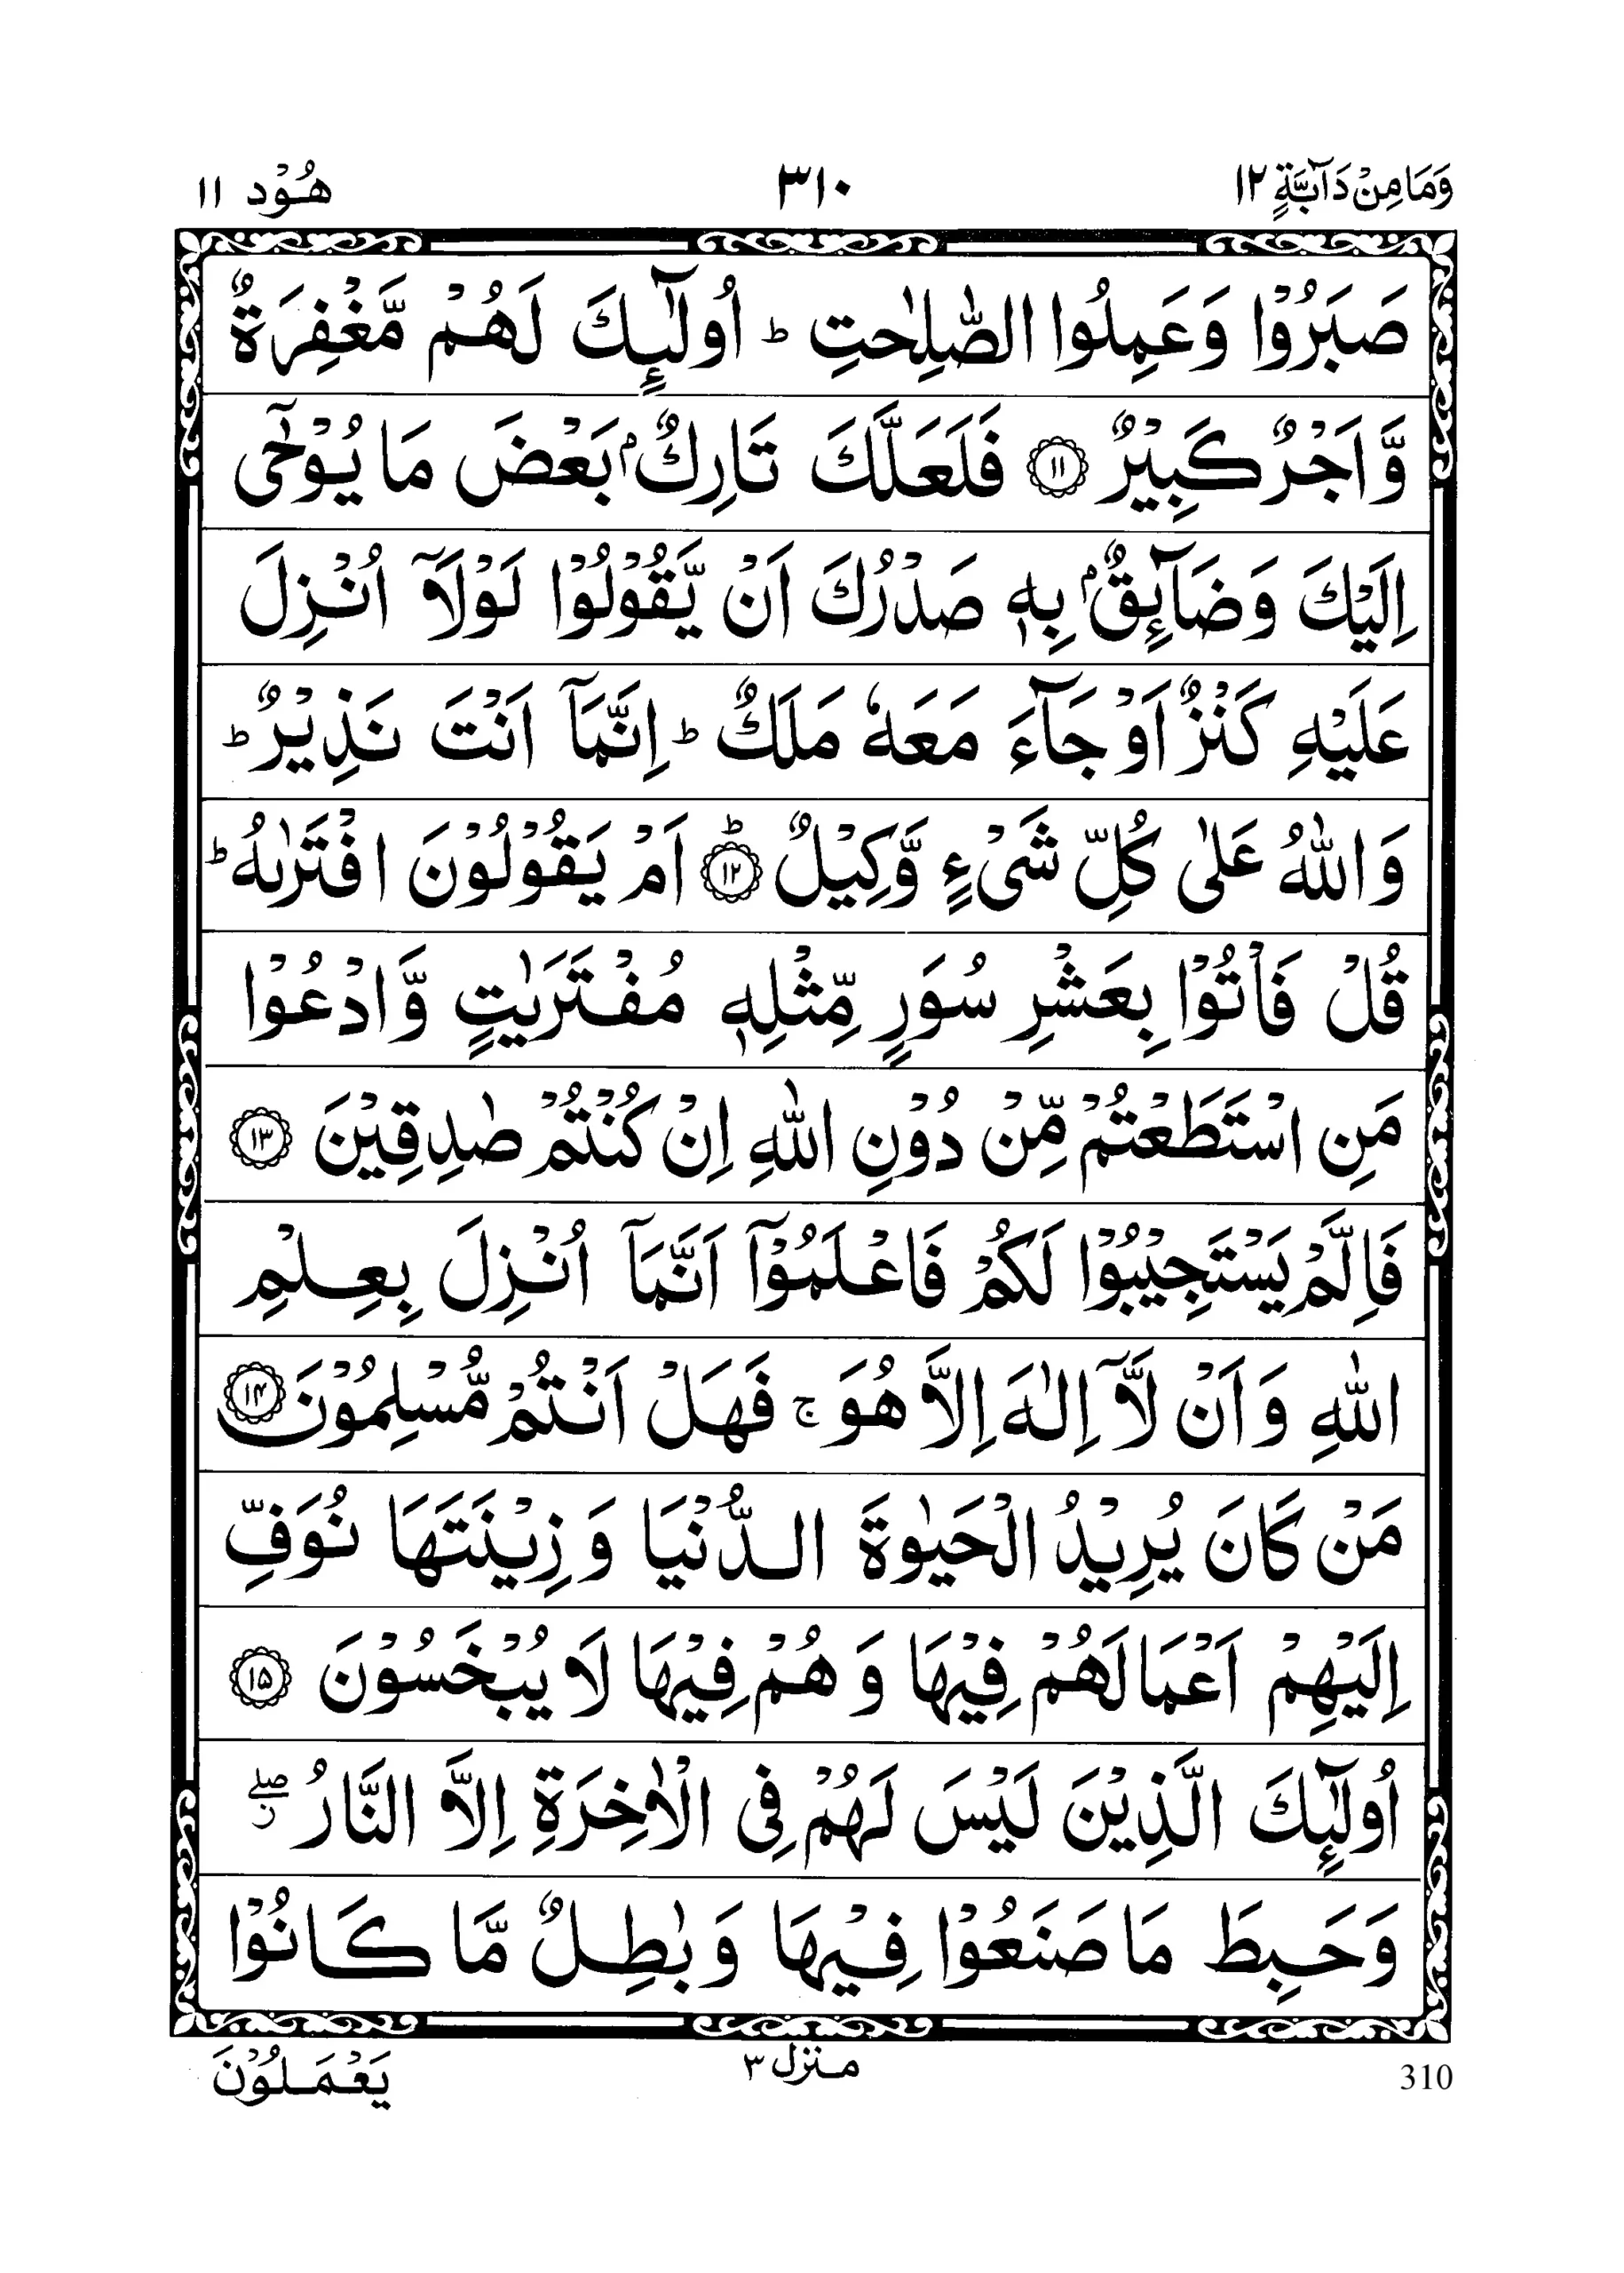 وَمَا مِنْ دَآبَّةٍ ١٢
٣١٠
هُوْد ١١
صَبَرُوْا وَعَمِلُوا الصّٰلِحٰتِ ؕ اُولٰٓئِكَ لَهُمْ مَّغْفِرَةٌ
وَّاَجْرٌ كَبِيْرٌ ﴿١١﴾ فَلَعَلَّكَ تَارِكٌۢ بَعْضَ مَا يُوْحٰٓى
اِلَيْكَ وَضَآئِقٌۢ بِهٖ صَدْرُكَ اَنْ يَّقُوْلُوْا لَوْلَاۤ اُنْزِلَ
عَلَيْهِ كَنْزٌ اَوْ جَآءَ مَعَهٗ مَلَكٌ ؕ اِنَّمَاۤ اَنْتَ نَذِيْرٌ ؕ
وَاللّٰهُ عَلٰى كُلِّ شَىْءٍ وَّكِيْلٌ ﴿١٢﴾ؕ اَمْ يَقُوْلُوْنَ افْتَرٰىهُ ؕ
قُلْ فَاْتُوْا بِعَشْرِ سُوَرٍ مِّثْلِهٖ مُفْتَرَيٰتٍ وَّادْعُوْا
مَنِ اسْتَطَعْتُمْ مِّنْ دُوْنِ اللّٰهِ اِنْ كُنْتُمْ صٰدِقِيْنَ ﴿١٣﴾
فَاِلَّمْ يَسْتَجِيْبُوْا لَكُمْ فَاعْلَمُوْۤا اَنَّمَاۤ اُنْزِلَ بِعِلْمِ
اللّٰهِ وَاَنْ لَّاۤ اِلٰهَ اِلَّا هُوَ ۚ فَهَلْ اَنْتُمْ مُّسْلِمُوْنَ ﴿١٤﴾
مَنْ كَانَ يُرِيْدُ الْحَيٰوةَ الدُّنْيَا وَزِيْنَتَهَا نُوَفِّ
اِلَيْهِمْ اَعْمَالَهُمْ فِيْهَا وَهُمْ فِيْهَا لَا يُبْخَسُوْنَ ﴿١٥﴾
اُولٰٓئِكَ الَّذِيْنَ لَيْسَ لَهُمْ فِى الْاٰخِرَةِ اِلَّا النَّارُ ۖ ز
وَحَبِطَ مَا صَنَعُوْا فِيْهَا وَبٰطِلٌ مَّا كَانُوْا
يَعْمَلُوْنَ
منزل ٣
310